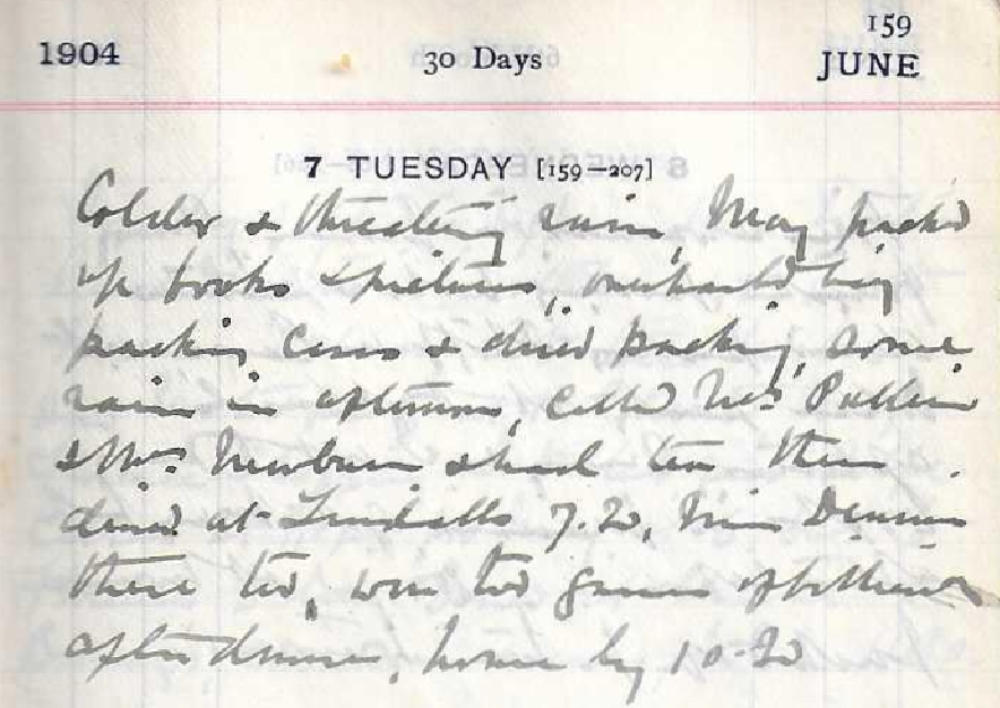 159
1904 30 Days JUNE
7 TUESDAY [159—207]
Colder & threatening rain, May packed
up books & pictures, overhauled big
packing cases & dried packing, some
rain in afternoon, called Mrs Pullein
& Mrs Newburn & had tea there.
dined at 7.30, Miss
there too, won two games of
after dinner, home by 10.30